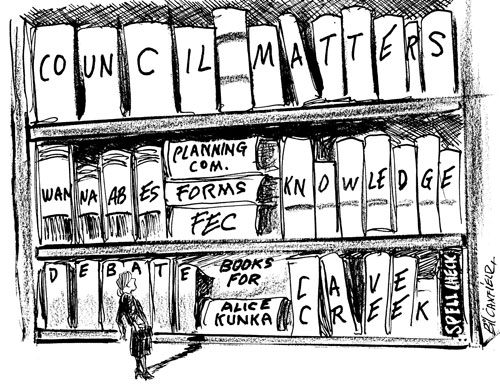 COUNCIL MATTERS
WANNABES
PLANNING
COM.
FORMS
FEC
KNOWLEDGE
DEBATE
BOOKS
FOR
ALICE
KUNKA
CAVE
CREEK
SPELL CHECK